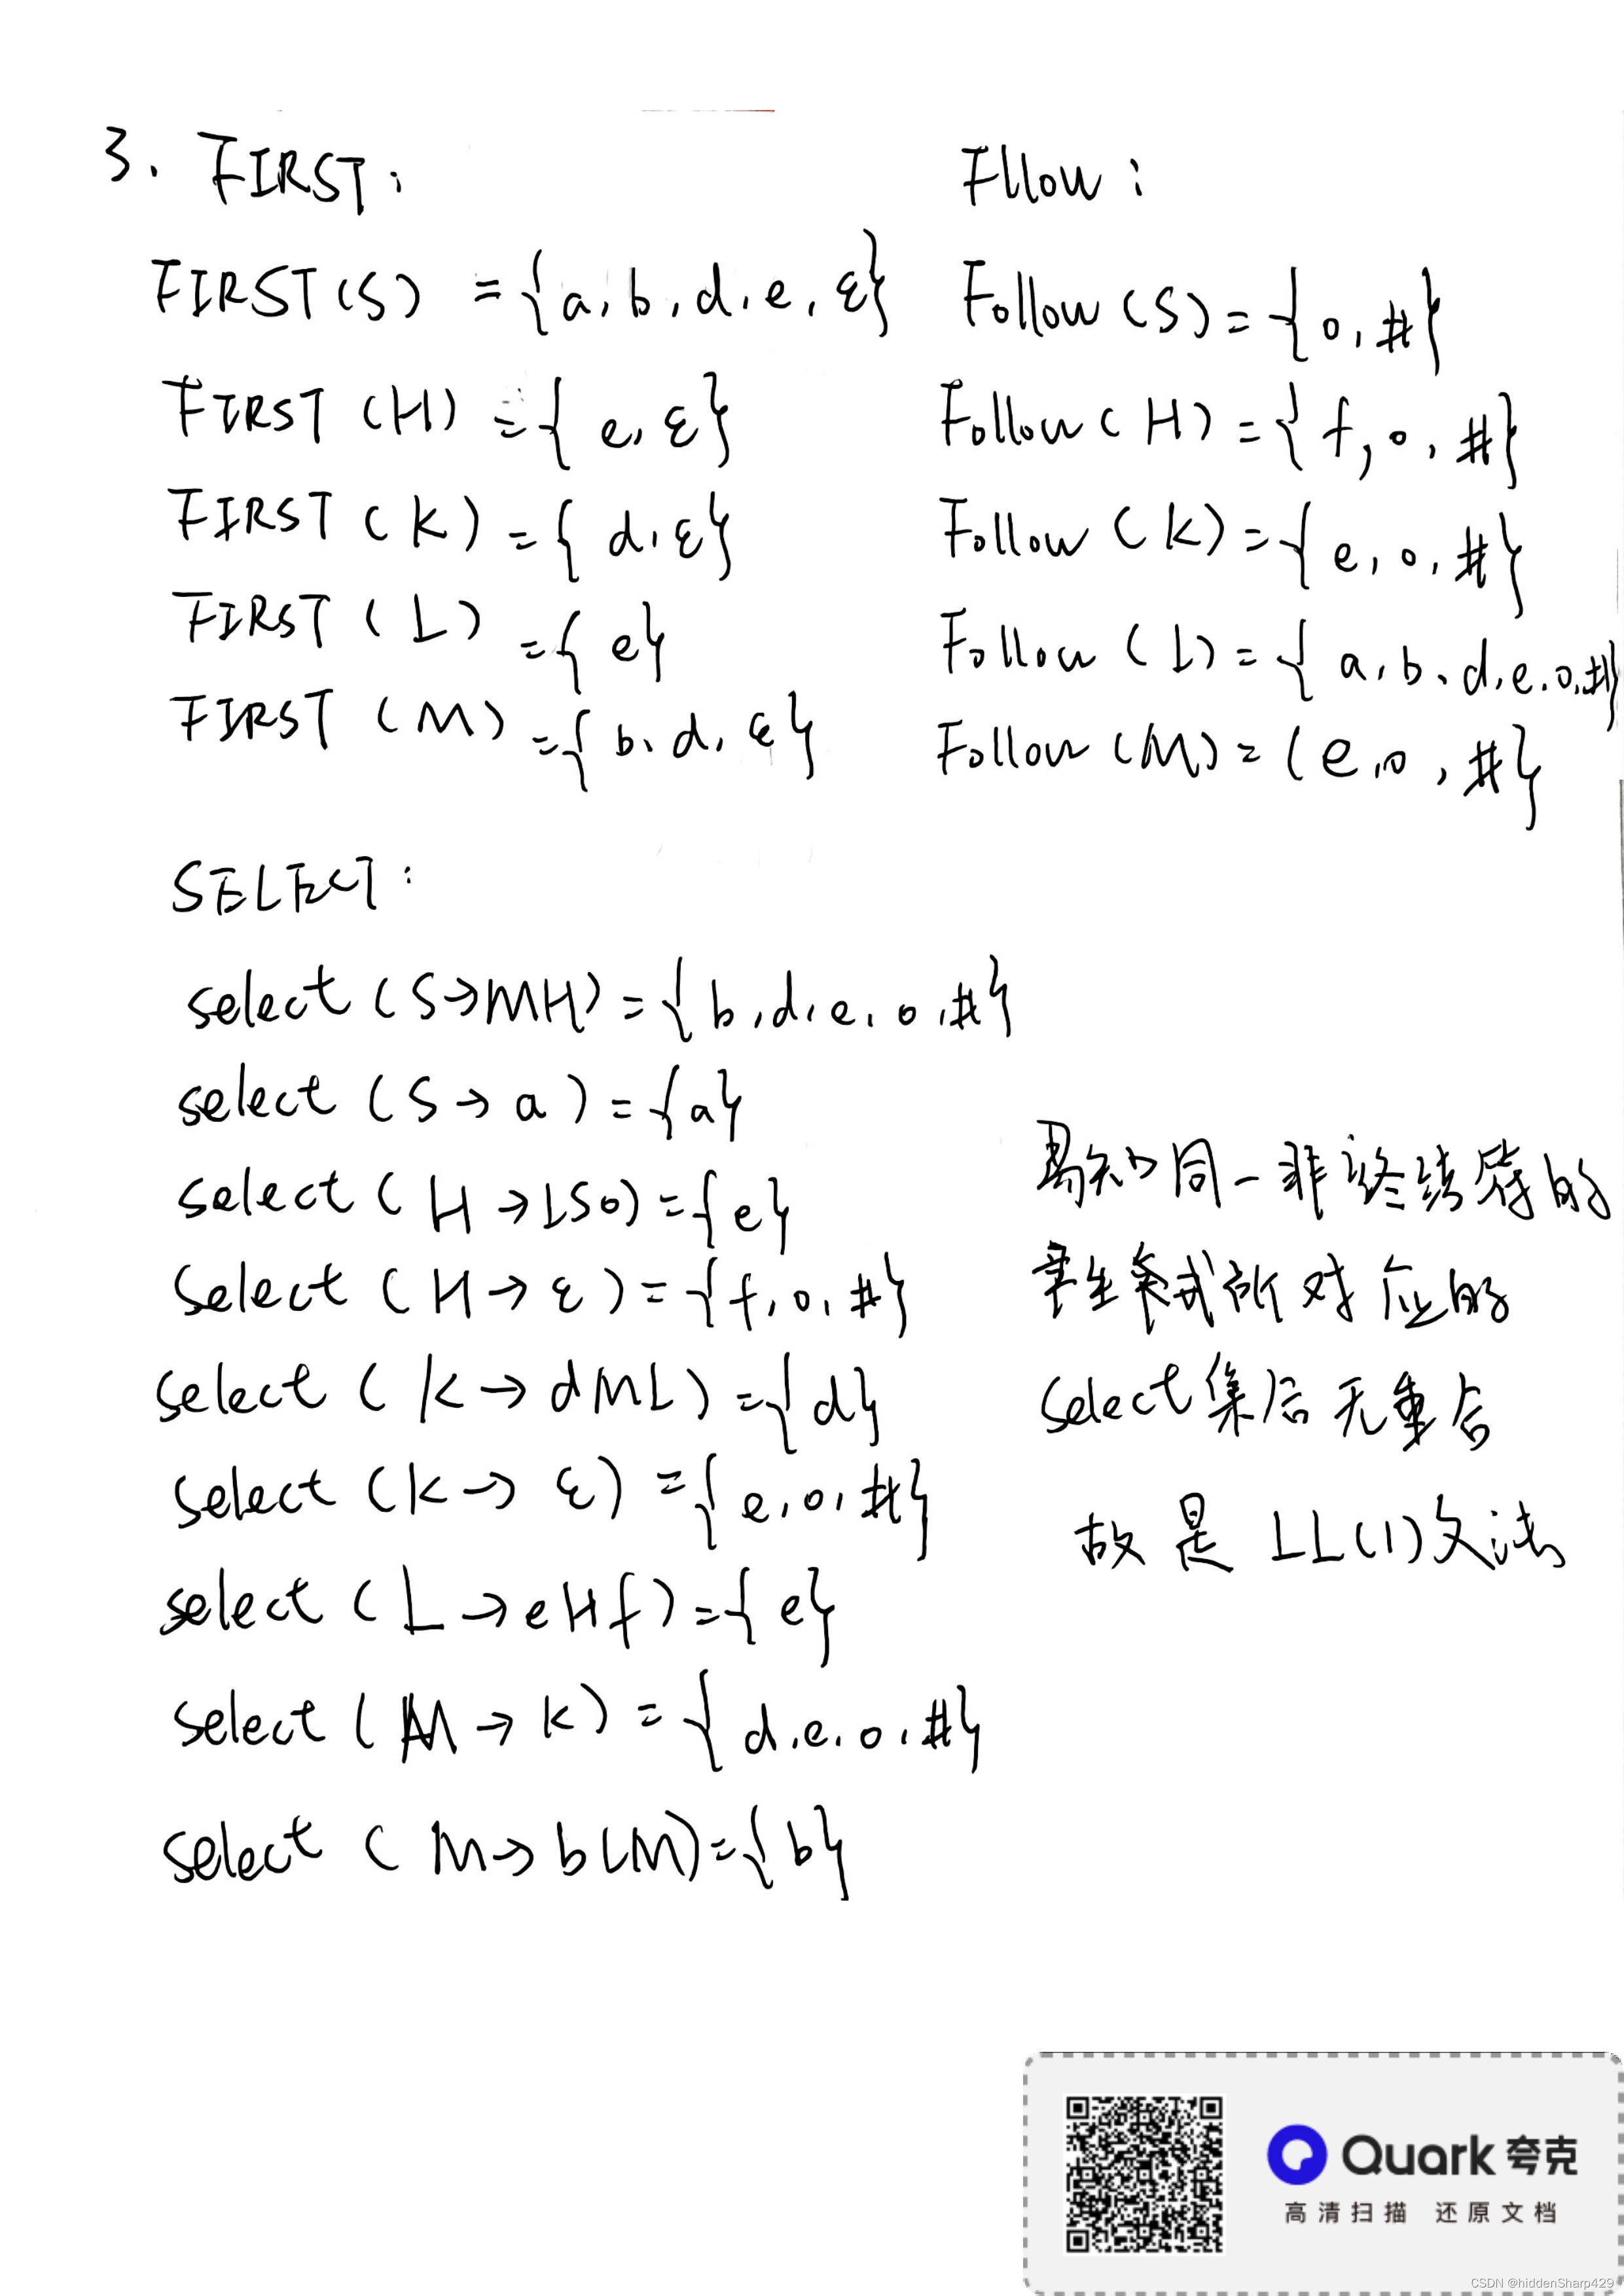 3. FIRST:
Fllow:
FIRST(S) = {a, b, d, e, ε}
Follow(S) = {o, #}
FIRST(H) = {e, ε}
Follow(H) = {f, o, #}
FIRST(K) = {d, ε}
Follow(K) = {e, o, #}
FIRST(L) = {e}
Follow(L) = {a, b, d, e, o, #}
FIRST(M) = {b, d, ε}
Follow(M) = (e, o, #}
SELECT:
select(S→MH) = {b, d, e, o, #}
select(S→a) = {a}
select(H→LSo) = {e}
select(H→ε) = {f, o, #}
select(K→dML) = {d}
select(K→ε) = {e, o, #}
select(L→eHf) = {e}
select(M→K) = {d, e, o, #}
select(M→bLM) = {b}
易知同一非终结符的
产生式所对应的
select集合无重合
故是LL(1)文法
Quark 夸克
高清扫描 还原文档
CSDN @hiddenSharp429